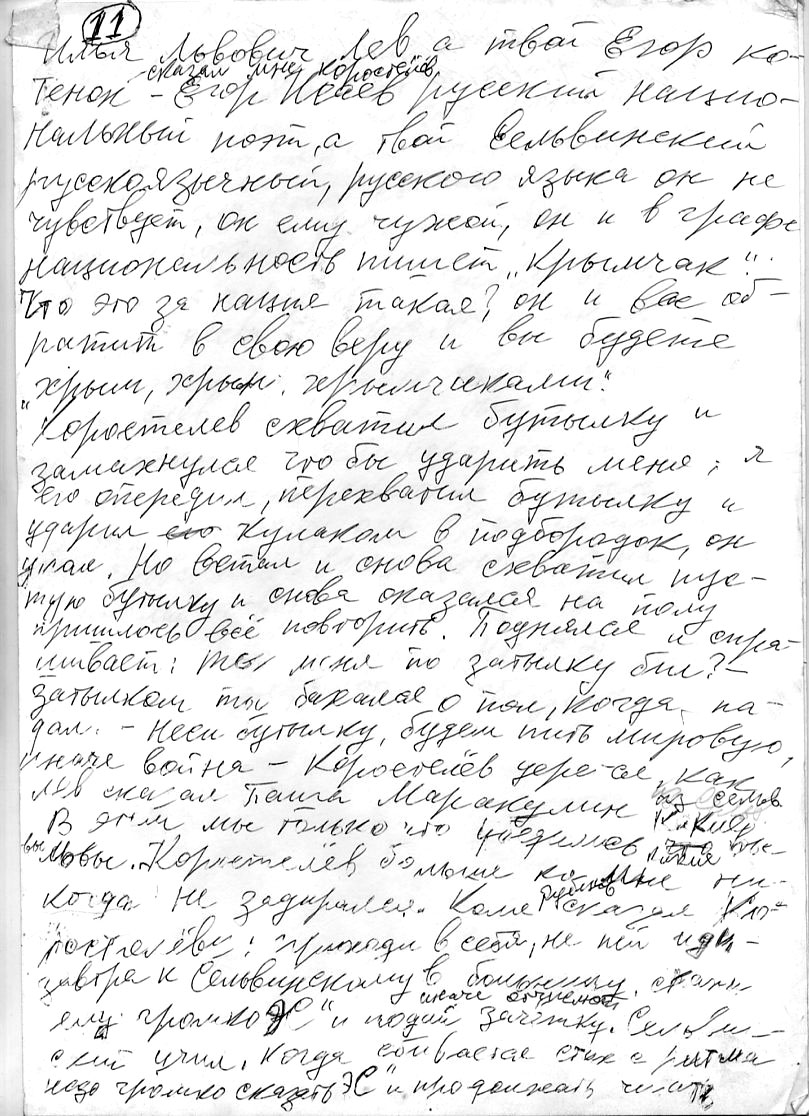 11
Илья Львович Лев, а твой Егор ко-
сказал мне Коростелёв
тёнок - Егор Исаев русский нацио-
нальный поэт, а твой Сельвинский
русскоязычный, русского языка он не
чувствует, он ему чужой, он и в графе
национальность пишет „Крымчак".
Что это за нация такая? он и вас об-
ратит в свою веру и вы будете
„хрым, хрым. хрымчиками".
Коростелев схватил бутылку и
замахнулся что бы ударить меня, я
его опередил, перехватил бутылку и
ударил его кулаком в подбородок, он
упал. Но встал и снова схватил пус-
тую бутылку и снова оказался на полу
пришлось всё повторить. Поднялся и спра-
шивает: ты меня по затылку бил? -
затылком ты бахался о пол, когда па-
дал. - Неси бутылку, будем пить мировую,
иначе война - Коростелёв дерется, как
лев сказал Паша Маракулин из семьи
В этом мы только что убедились какие
вы львы. Коростелёв больше ко мне ни-
когда не задирался. Коля Рубцов сказал Ко-
ростелёву: приходи в себя, не пей иди
завтра к Сельвинскому в больницу, скажи
иначе отчислют
ему громко „ЭС" и подай зачётку. Сельвин-
ский учил, когда сбивается стих с ритма
надо громко сказать „ЭС" и продолжать читать